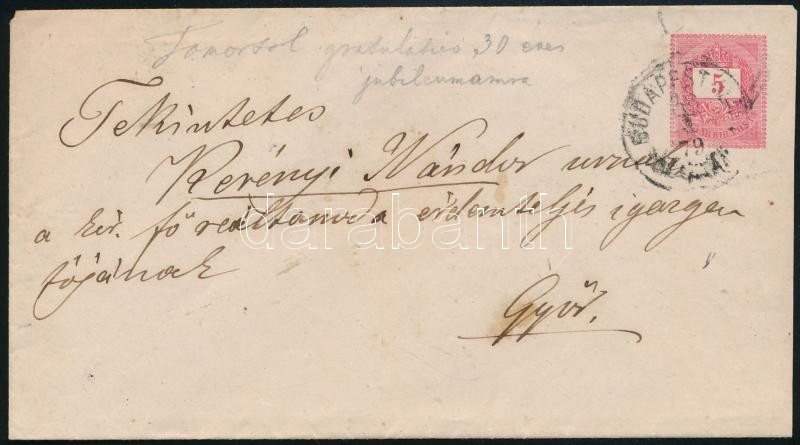 gratulatio 30 éves
jubileumomra
Tekintetes
Kerényi Nándor urnak
a kir. főreáltanoda érdemteljes igazga
tójának
Győr.
BUDAPEST
79
5
darabanth